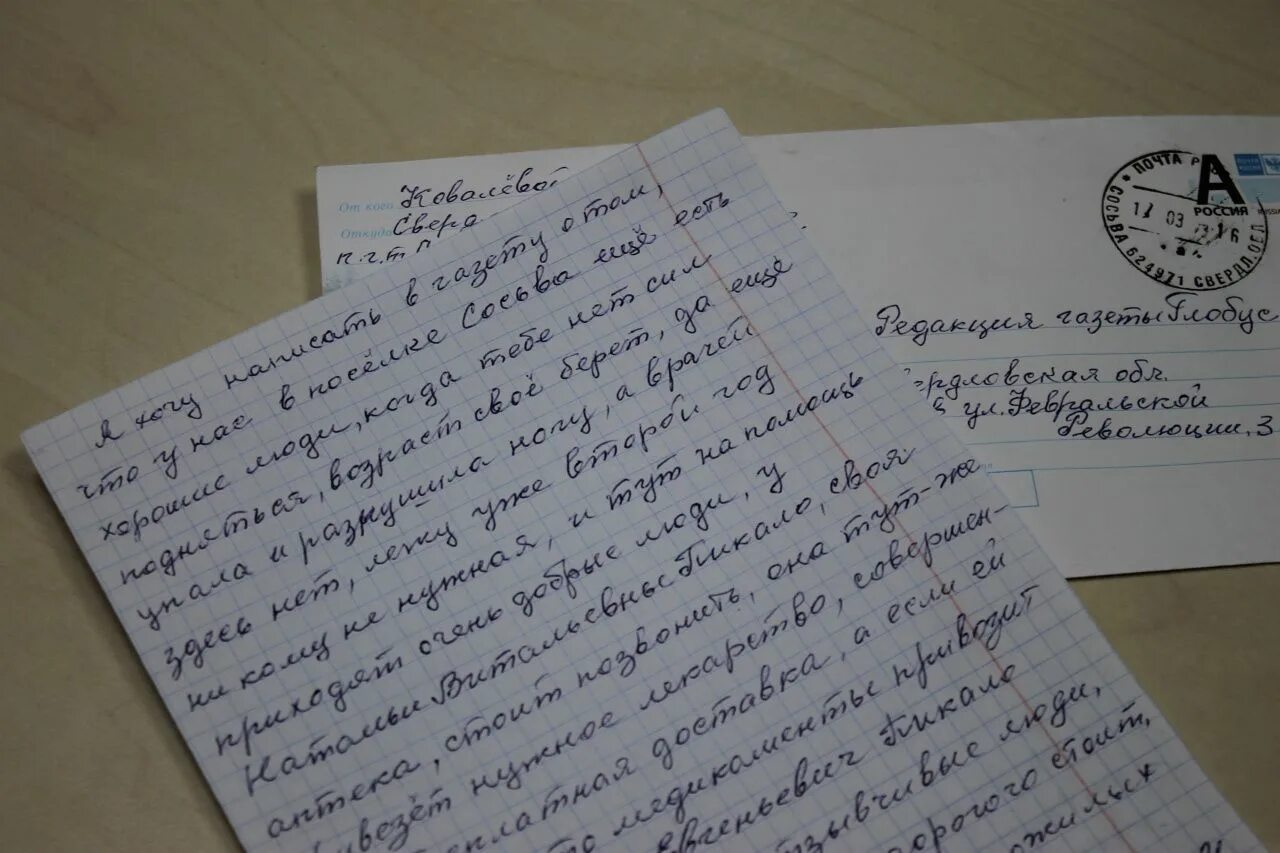 От кого Ковалёвой
Откуда Сверд
п.г.т
ПОЧТА Р
А
РОССИЯ
03
СОСЬВА 624971 СВЕРДЛ.ОБЛ
Редакция газеты Глобус
рдловская обл.
ул. Февральской
Революции, 3
Я хочу написать в газету о том,
что у нас в посёлке Сосьва ещё есть
хорошие люди, когда тебе нет сил
подняться, возраст своё берет, да ещё
упала и разрушила ногу, а врачей
здесь нет, лежу уже второй год
ни кому не нужная, и тут на помощь
приходят очень добрые люди, у
Натальи Витальевны Гикало, своя
аптека, стоит позвонить, она тут-же
ивезёт нужное лекарство, совершен-
платная доставка, а если ей
то медикаменты привозит
Евгеньевич Гикало
тзывчивые люди,
дорогого стоит,
ожилых